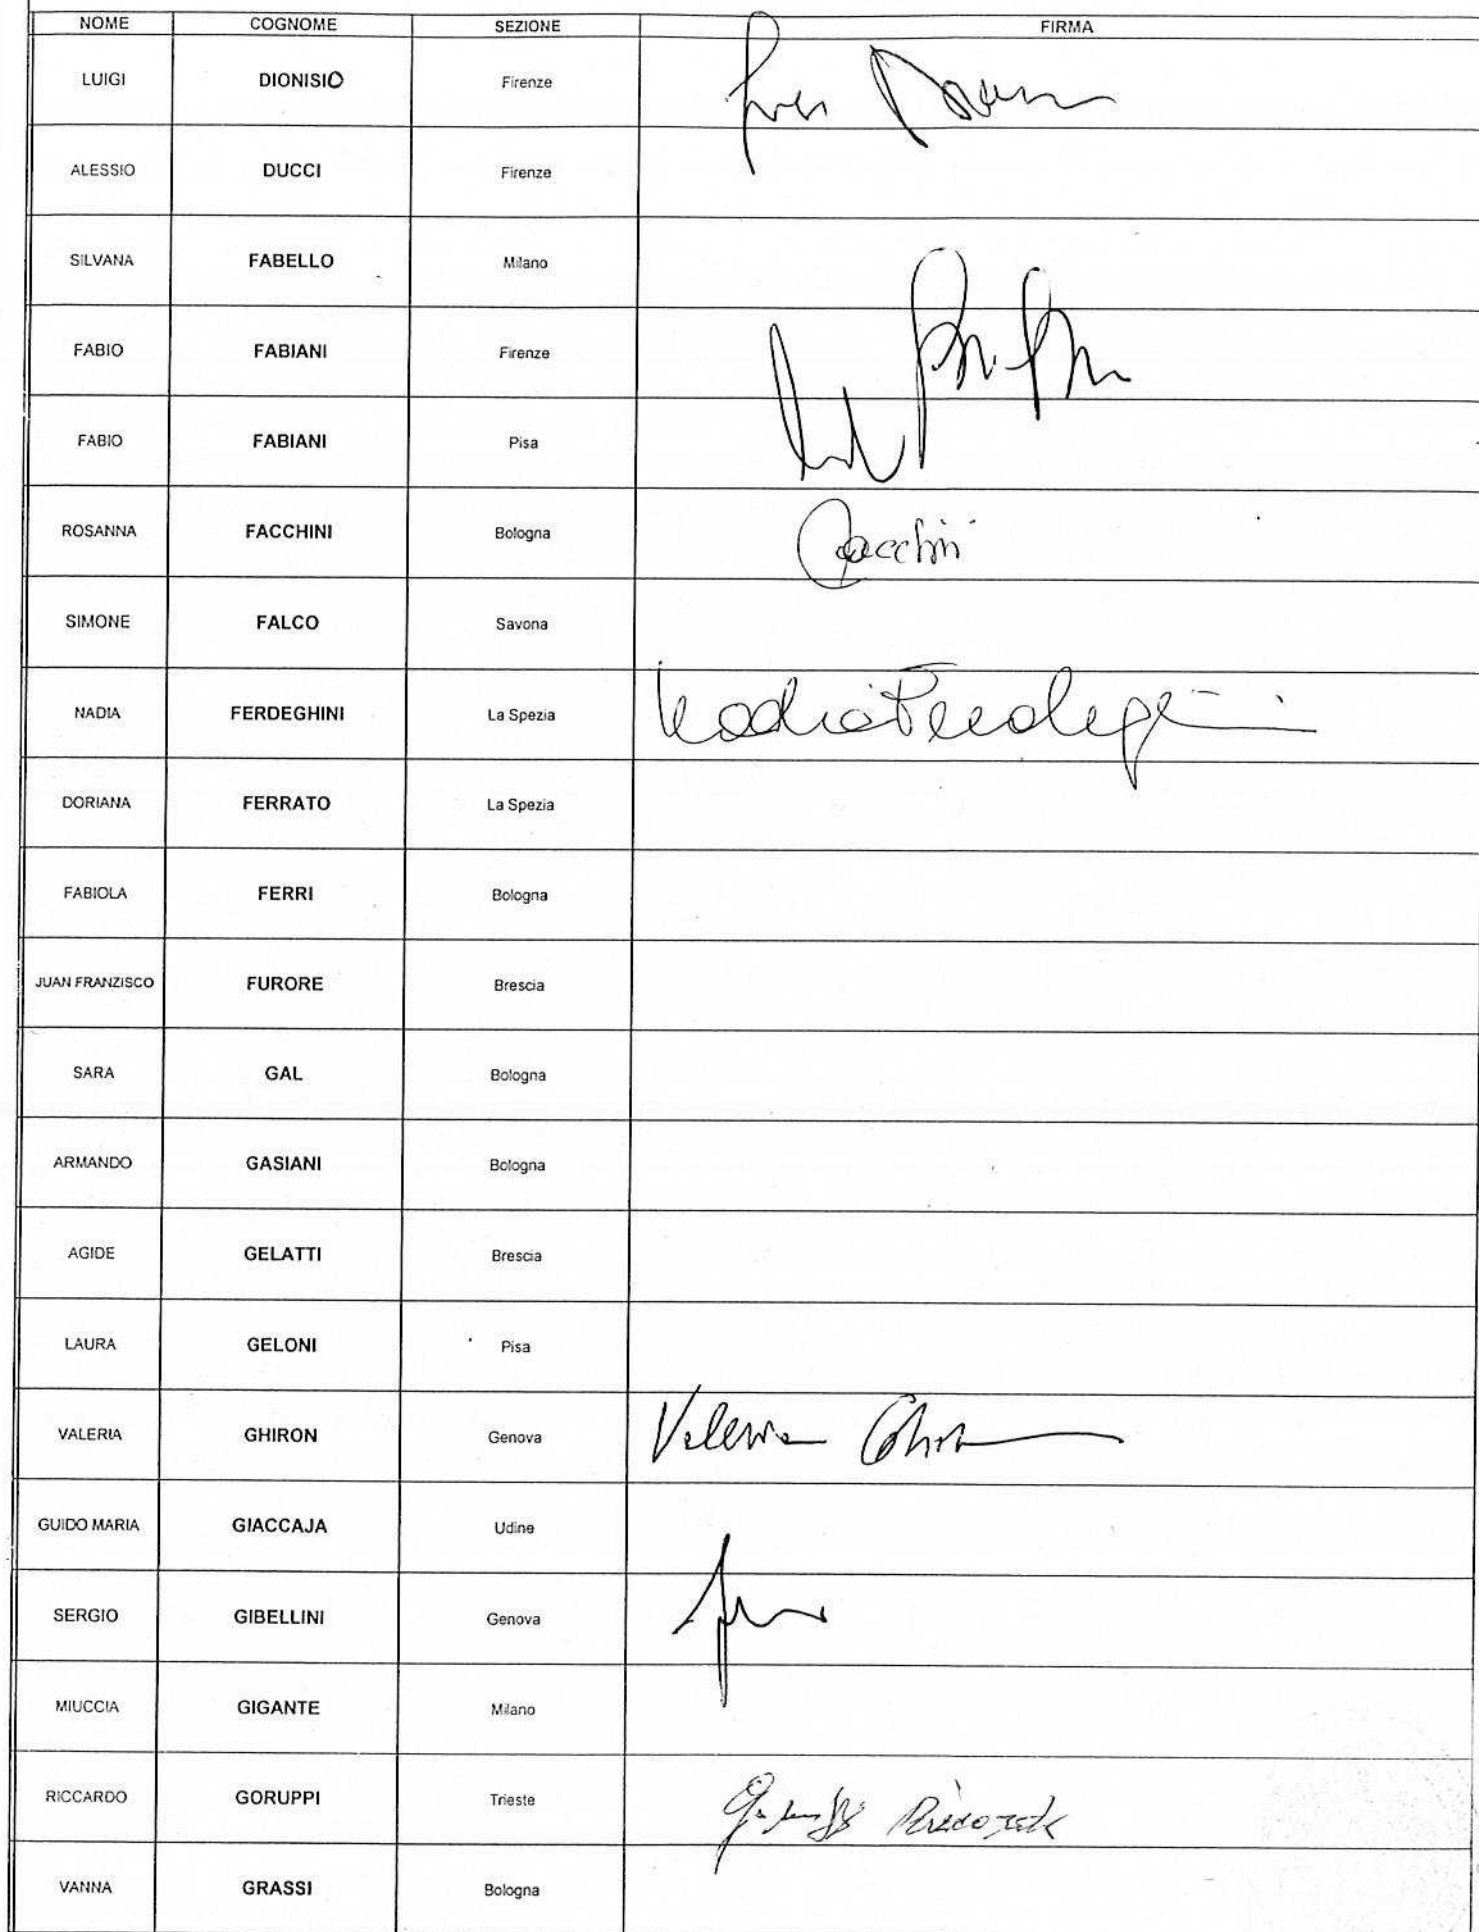 NOME COGNOME SEZIONE FIRMA
LUIGI DIONISIO Firenze
ALESSIO DUCCI Firenze
SILVANA FABELLO Milano
FABIO FABIANI Firenze
FABIO FABIANI Pisa
ROSANNA FACCHINI Bologna Facchini
SIMONE FALCO Savona
NADIA FERDEGHINI La Spezia Nadia Ferdeghini
DORIANA FERRATO La Spezia
FABIOLA FERRI Bologna
JUAN FRANZISCO FURORE Brescia
SARA GAL Bologna
ARMANDO GASIANI Bologna
AGIDE GELATTI Brescia
LAURA GELONI Pisa
VALERIA GHIRON Genova Valeria Ghiron
GUIDO MARIA GIACCAJA Udine
SERGIO GIBELLINI Genova
MIUCCIA GIGANTE Milano
RICCARDO GORUPPI Trieste
VANNA GRASSI Bologna